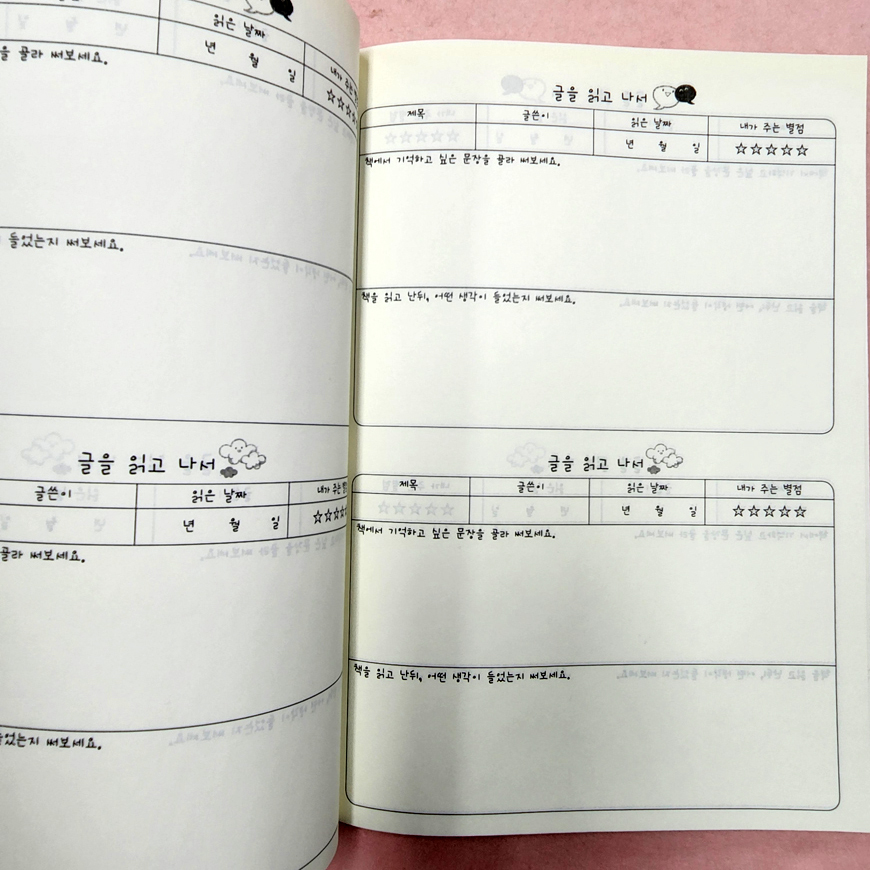 읽은 날짜
년 월 일
내가 주는
☆☆☆☆
을 골라 써보세요.
들었는지 써보세요.
글을 읽고 나서
글쓴이 읽은 날짜 내가 주는
년 월 일 ☆☆☆
골라 써보세요.
었는지 써보세요.
글을 읽고 나서
제목 글쓴이 읽은 날짜 내가 주는 별점
년 월 일 ☆☆☆☆☆
책에서 기억하고 싶은 문장을 골라 써보세요.
책을 읽고 난뒤, 어떤 생각이 들었는지 써보세요.
글을 읽고 나서
제목 글쓴이 읽은 날짜 내가 주는 별점
년 월 일 ☆☆☆☆☆
책에서 기억하고 싶은 문장을 골라 써보세요.
책을 읽고 난뒤, 어떤 생각이 들었는지 써보세요.